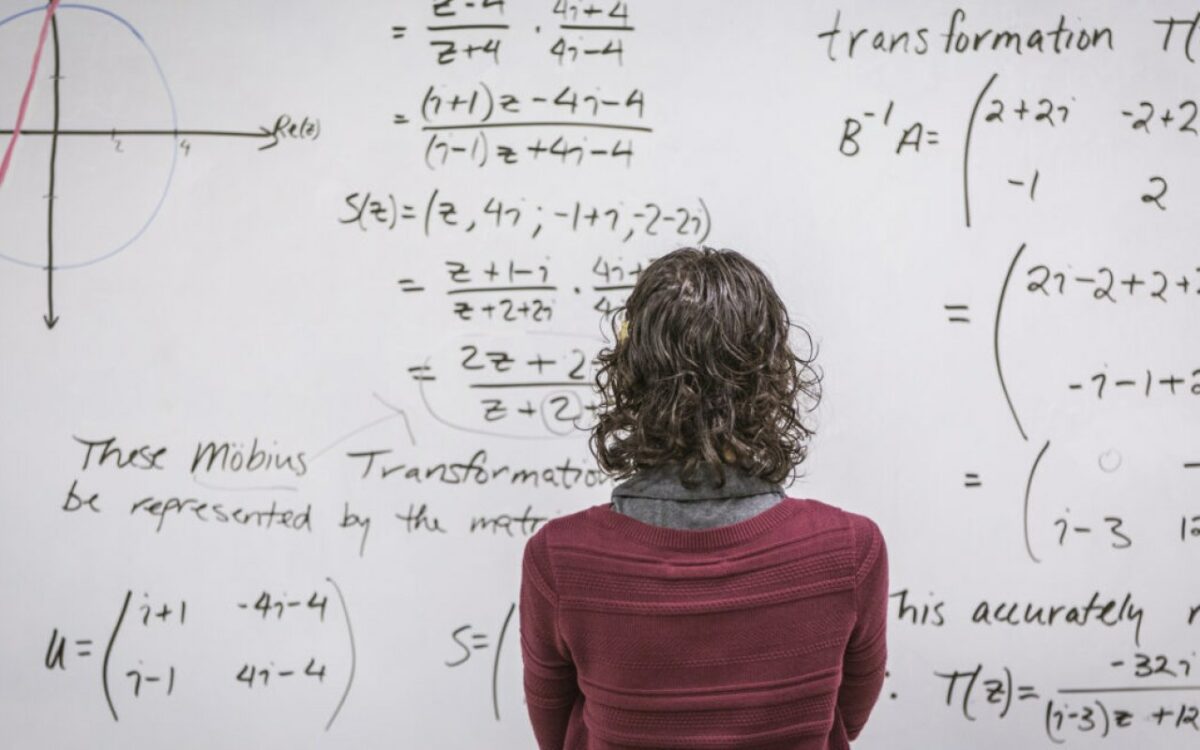 Re(z)
2 4
= z-4/z+4 · 4i+4/4i-4
= (i+1)z-4i-4/(i-1)z+4i-4
S(z)=(z,4i;-1+i,-2-2i)
= z+1-i/z+2+2i ·
= 2z+2/z+2
These Möbius Transformatio
be represented by the matri
U = (i+1 -4i-4
i-1 4i-4)
S=(
transformation T(
B⁻¹A= (2+2i -2+2
-1 2
= (2i-2+2+2
-i-1+2
= (0 -
i-3 12
his accurately r
: T(z)= -32i/(i-3)z+12